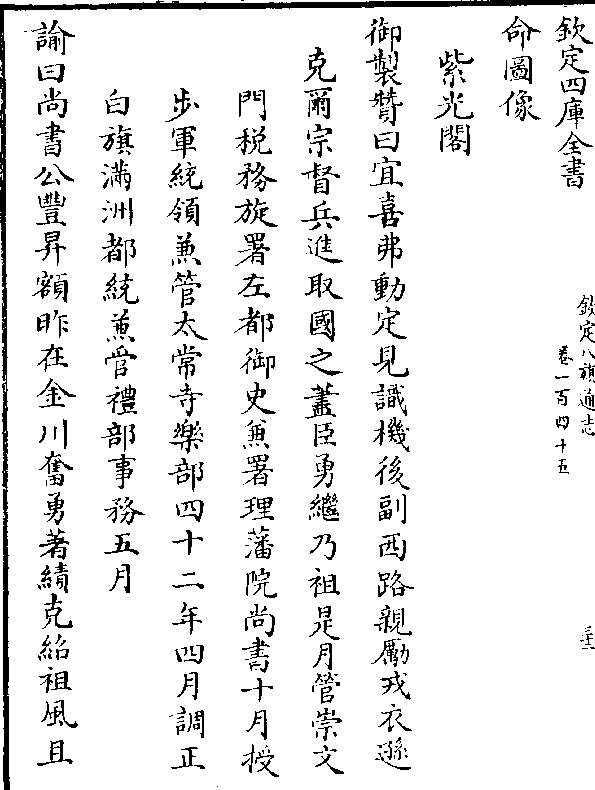 欽定四庫全書
欽定八旗通志
卷一百四十五
三十二
命圖像
紫光閣
御製贊曰宜喜弗動定見識機後副西路親勵戎衣遜
克爾宗督兵進取國之藎臣勇繼乃祖是月管崇文
門稅務旋署左都御史兼署理藩院尚書十月授
步軍統領兼管太常寺樂部四十二年四月調正
白旗滿洲都統兼管禮部事務五月
諭曰尚書公豐昇額昨在金川奮勇著績克紹祖風且